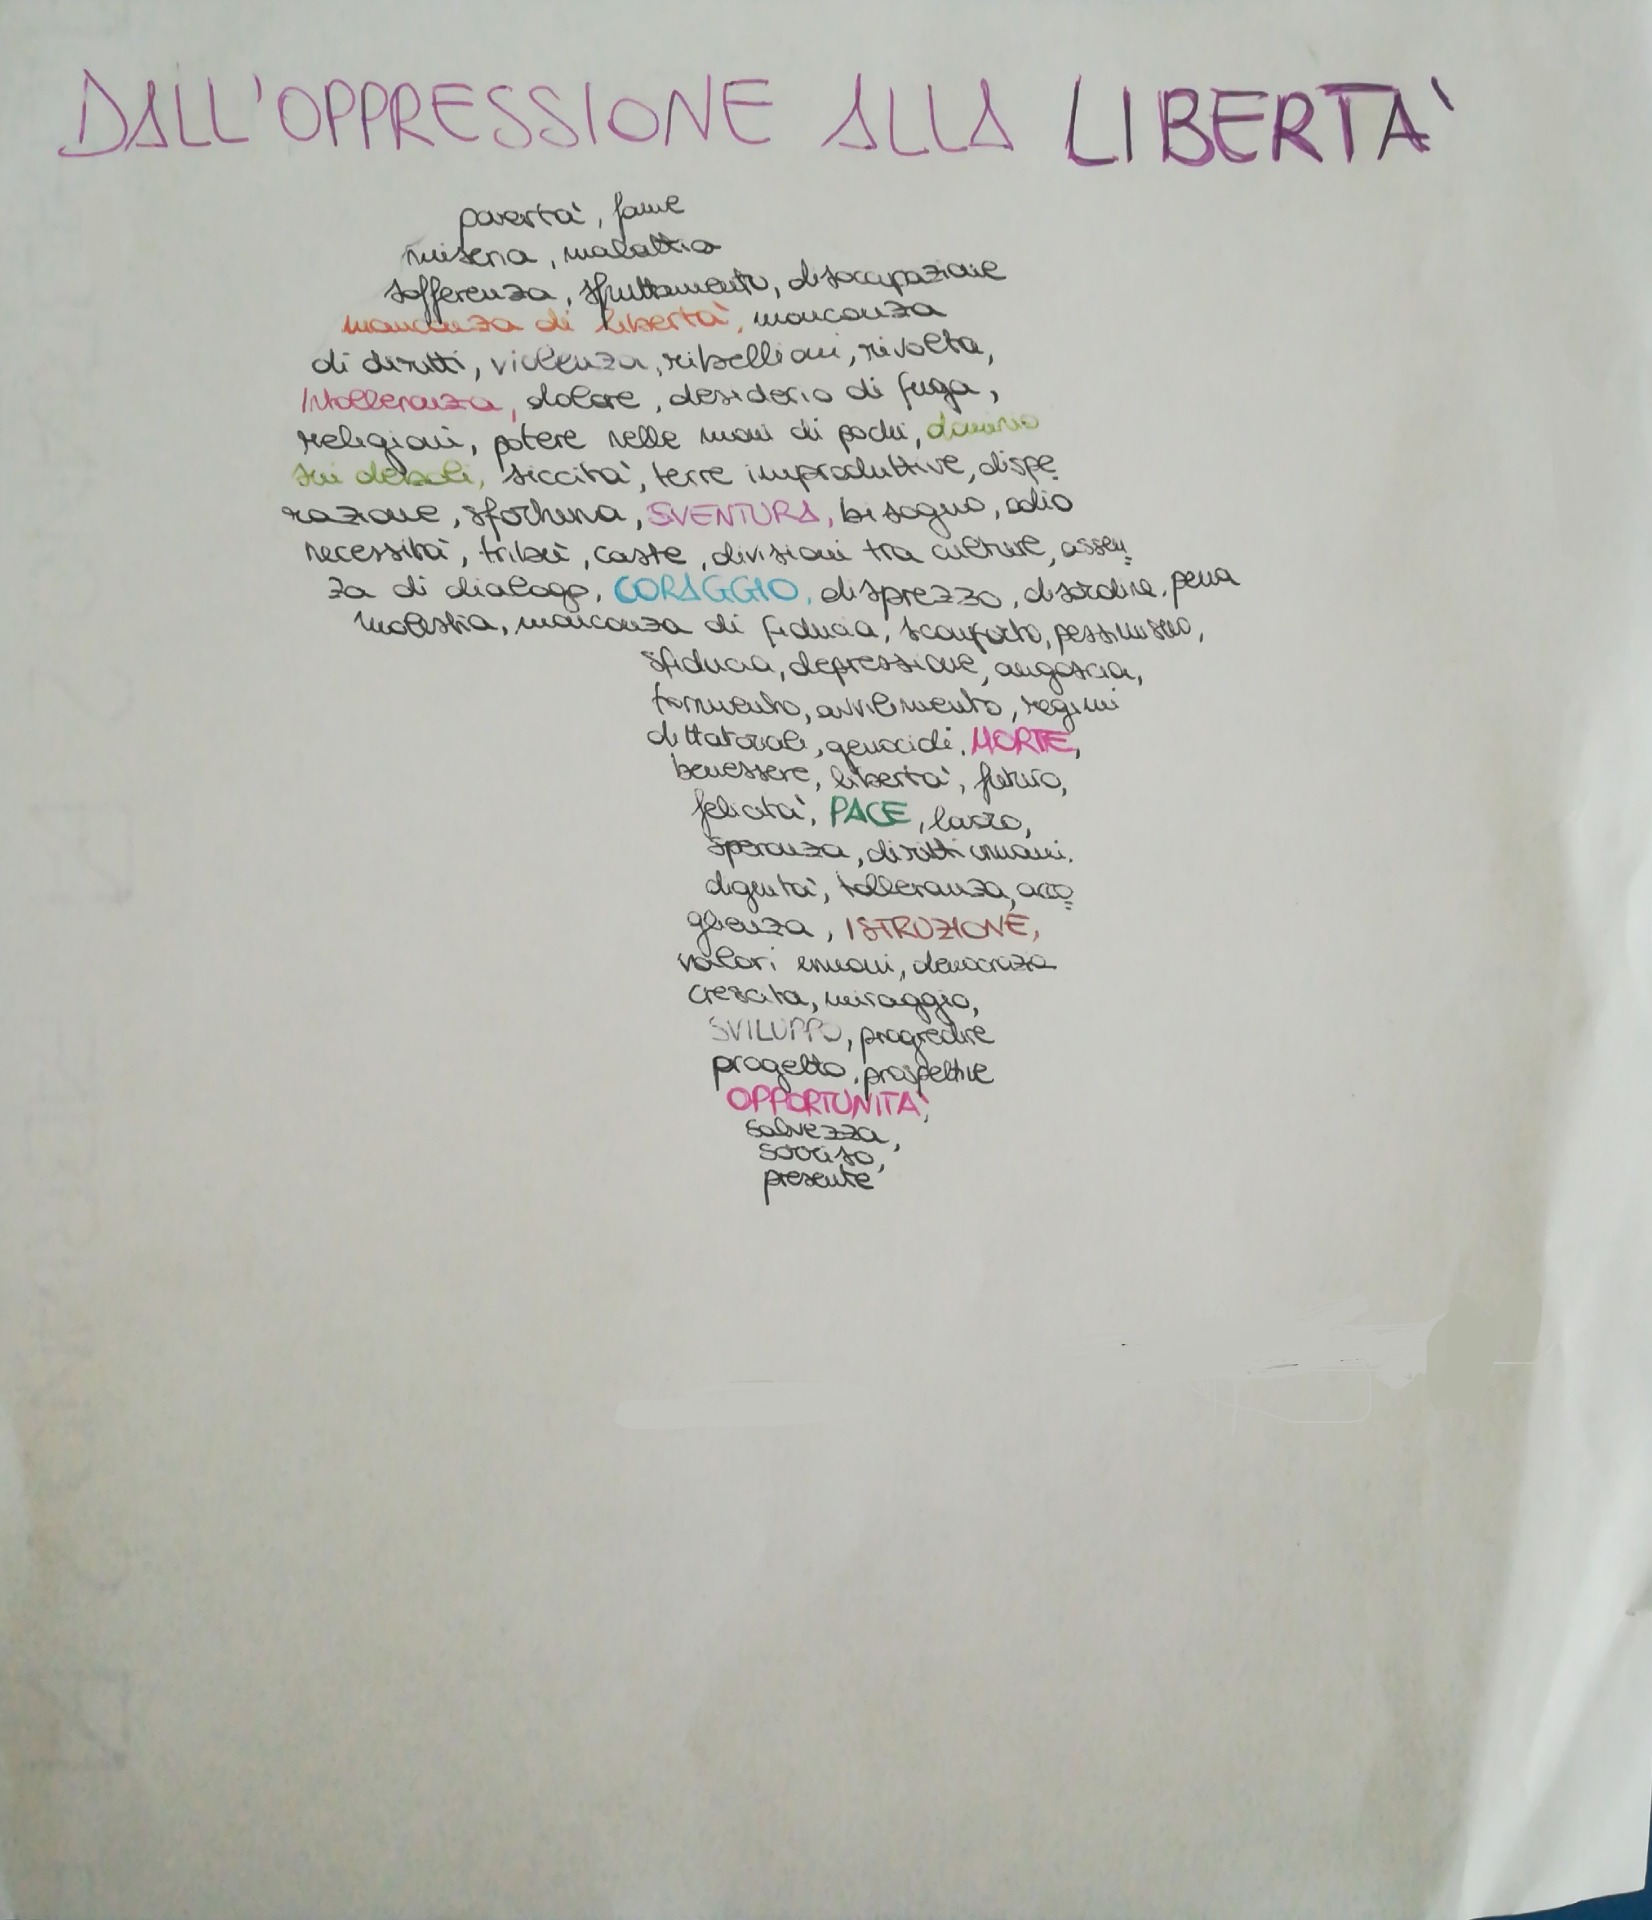 DALL'OPPRESSIONE ALLA LIBERTA'
povertà, fame
miseria, malattia
sofferenza, sfruttamento, disoccupazione
mancanza di libertà, mancanza
di diritti, violenza, ribellioni, rivolta,
Intolleranza, dolore, desiderio di fuga,
religioni, potere nelle mani di pochi, dominio
sui deboli, siccità, terre improduttive, dispe
razione, sfortuna, SVENTURA, bisogno, odio
necessità, tribù, caste, divisioni tra culture, assen
za di dialogo, CORAGGIO, disprezzo, disordine, pena
molestia, mancanza di fiducia, sconforto, pessimismo,
sfiducia, depressione, angoscia,
tormento, avvilimento, regimi
dittatoriali, genocidi, MORTE,
benessere, libertà, futuro,
felicità, PACE, lavoro,
speranza, diritti umani.
dignità, tolleranza, acco
glienza, ISTRUZIONE,
valori umani, democrazia
crescita, miraggio,
SVILUPPO, progredire
progetto, prospettive
OPPORTUNITA',
salvezza,
sorriso,
presente